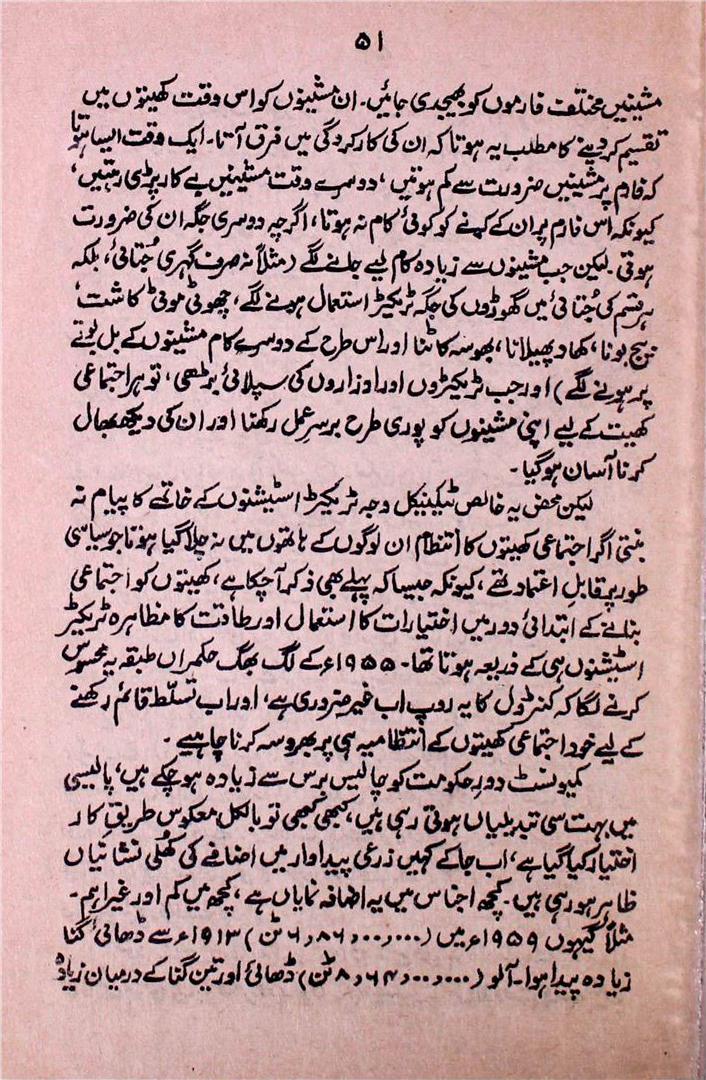 ۵۱
مشینیں مختلف فارموں کو بھیجدی جائیں۔ ان مشینوں کو اس وقت کھیتوں میں
تقسیم کر دینے کا مطلب یہ ہوتا کہ ان کی کارکردگی میں فرق آتا۔ ایک وقت ایسا ہوتا
کہ فارم پر مشینیں ضرورت سے کم ہوتیں، دوسرے وقت مشینیں بے کار پڑی رہتیں،
کیونکہ اس فارم پر ان کے کہنے کو کوئی کام نہ ہوتا، اگرچہ دوسری جگہ ان کی ضرورت
ہوتی۔ لیکن جب مشینوں سے زیادہ کام لیے جانے لگے (مثلاً نہ صرف گہری جُتائی، بلکہ
ہر قسم کی جُتائی میں گھوڑوں کی جگہ ٹریکٹر استعمال ہونے لگے، چھوٹی موٹی کاشت،
بیج بونا، کھاد پھیلانا، بھوسہ کاٹنا اور اس طرح کے دوسرے کام مشینوں کے بل بوتے
پر ہونے لگے) اور جب ٹریکٹروں اور اوزاروں کی سپلائی بڑھی، تو ہر اجتماعی
کھیت کے لیے اپنی مشینوں کو پوری طرح برسرِ عمل رکھنا اور ان کی دیکھ بھال
کرنا آسان ہوگیا۔
لیکن محض یہ خالص ٹیکنیکل وجہ ٹریکٹر اسٹیشنوں کے خاتمے کا پیام نہ
بنتی اگر اجتماعی کھیتوں کا انتظام ان لوگوں کے ہاتھوں میں نہ چلا گیا ہوتا جو سیاسی
طور پر قابلِ اعتماد تھے، کیونکہ جیسا کہ پہلے بھی ذکر آ چکا ہے، کھیتوں کو اجتماعی
بنانے کے ابتدائی دور میں اختیارات کا استعمال اور طاقت کا مظاہرہ ٹریکٹر
اسٹیشنوں ہی کے ذریعہ ہوتا تھا۔ ۱۹۵۵ء کے لگ بھگ حکمراں طبقہ یہ محسوس
کرنے لگا کہ کنٹرول کا یہ روپ اب غیر ضروری ہے، اور اب تسلّط قائم رکھنے
کے لیے خود اجتماعی کھیتوں کے انتظامیہ ہی پر بھروسہ کرنا چاہیے۔
کمیونسٹ دورِ حکومت کو چالیس برس سے زیادہ ہو چکے ہیں، پالیسی
میں بہت سی تبدیلیاں ہوتی رہی ہیں، کبھی کبھی تو بالکل معکوس طریقِ کار
اختیار کیا گیا ہے، اب جا کے کہیں زرعی پیداوار میں اضافے کی کھُلی نشانیاں
ظاہر ہو رہی ہیں۔ کچھ اجناس میں یہ اضافہ نمایاں ہے، کچھ میں کم اور غیر اہم۔
مثلاً گیہوں ۱۹۵۹ء میں (۶،۸۶،۰۰،۰۰۰ ٹن) ۱۹۱۳ء سے ڈھائی گنا
زیادہ پیدا ہوا۔ آلو (۸،۶۴،۰۰،۰۰۰ ٹن) ڈھائی اور تین گنا کے درمیان زیادہ